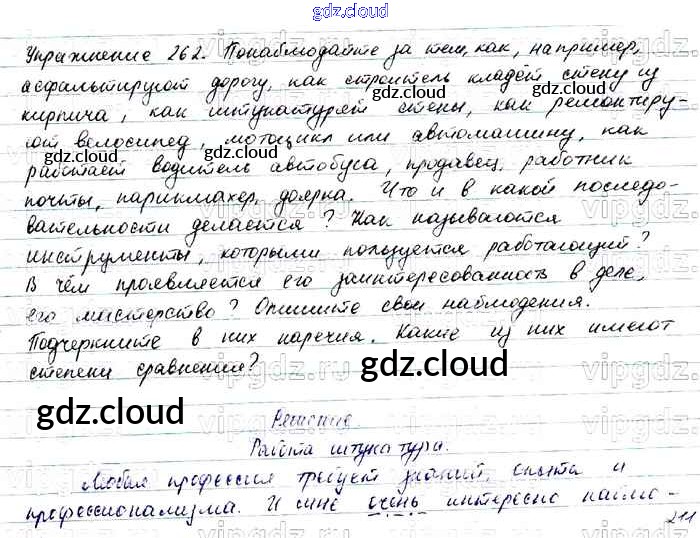 gdz.cloud
Упражнение 262. Понаблюдайте за тем, как, например,
асфальтируют дорогу, как строитель кладёт стену из
кирпича, как штукатурят стены, как ремонтиру-
ют велосипед, мотоцикл или автомашину, как
работает водитель автобуса, продавец, работник
почты, парикмахер, доярка. Что и в какой последо-
вательности делается? Как называются
инструменты, которыми пользуется работающий?
В чём проявляется его заинтересованность в деле,
его мастерство? Опишите свои наблюдения.
Подчеркните в них наречия. Какие из них имеют
степени сравнения?
gdz.cloud
gdz.cloud
gdz.cloud
gdz.cloud
gdz.cloud
gdz.cloud
Решение.
Работа штукатура.
Любая профессия требует знаний, опыта и
профессионализма. И мне очень интересно наблю-
211